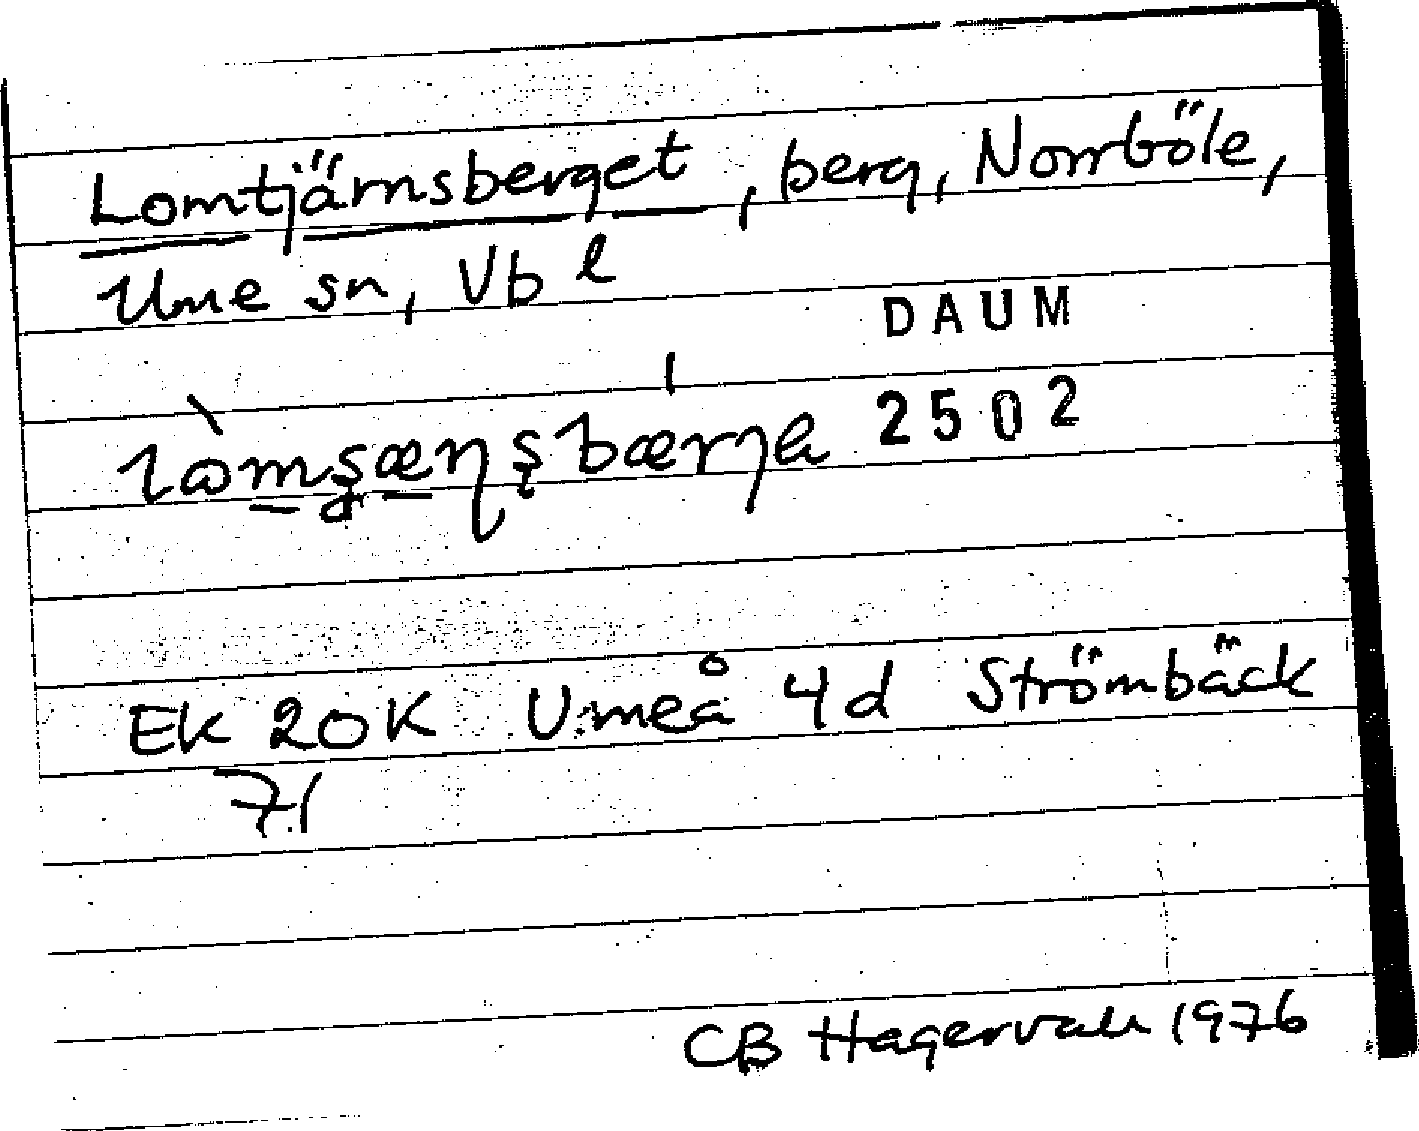 Lomtjärnsberget, berg, Norrböle,
Ume sn, Vb l
DAUM
2502
EK 20K Umeå 4d Strömbäck
71
CB Hagervall 1976